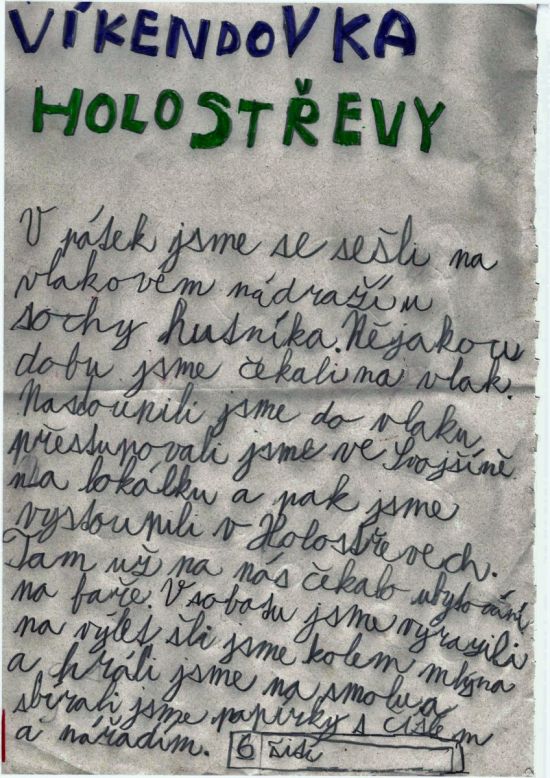 VÍKENDOVKA
HOLOSTŘEVY
V pátek jsme se sešli na
vlakovém nádraží u
sochy husníka. Nějakou
dobu jsme čekali na vlak.
Nastoupili jsme do vlaku
přestupovali jsme ve Svojšíně
na lokálku a pak jsme
vystoupili v Holostřevech.
Tam už na nás čekalo ubytování
na faře. V sobotu jsme vyrazili
na výlet šli jsme kolem mlýna
a hráli jsme na smolu a
sbírali jsme papírky s číslem
a nářadím.
6